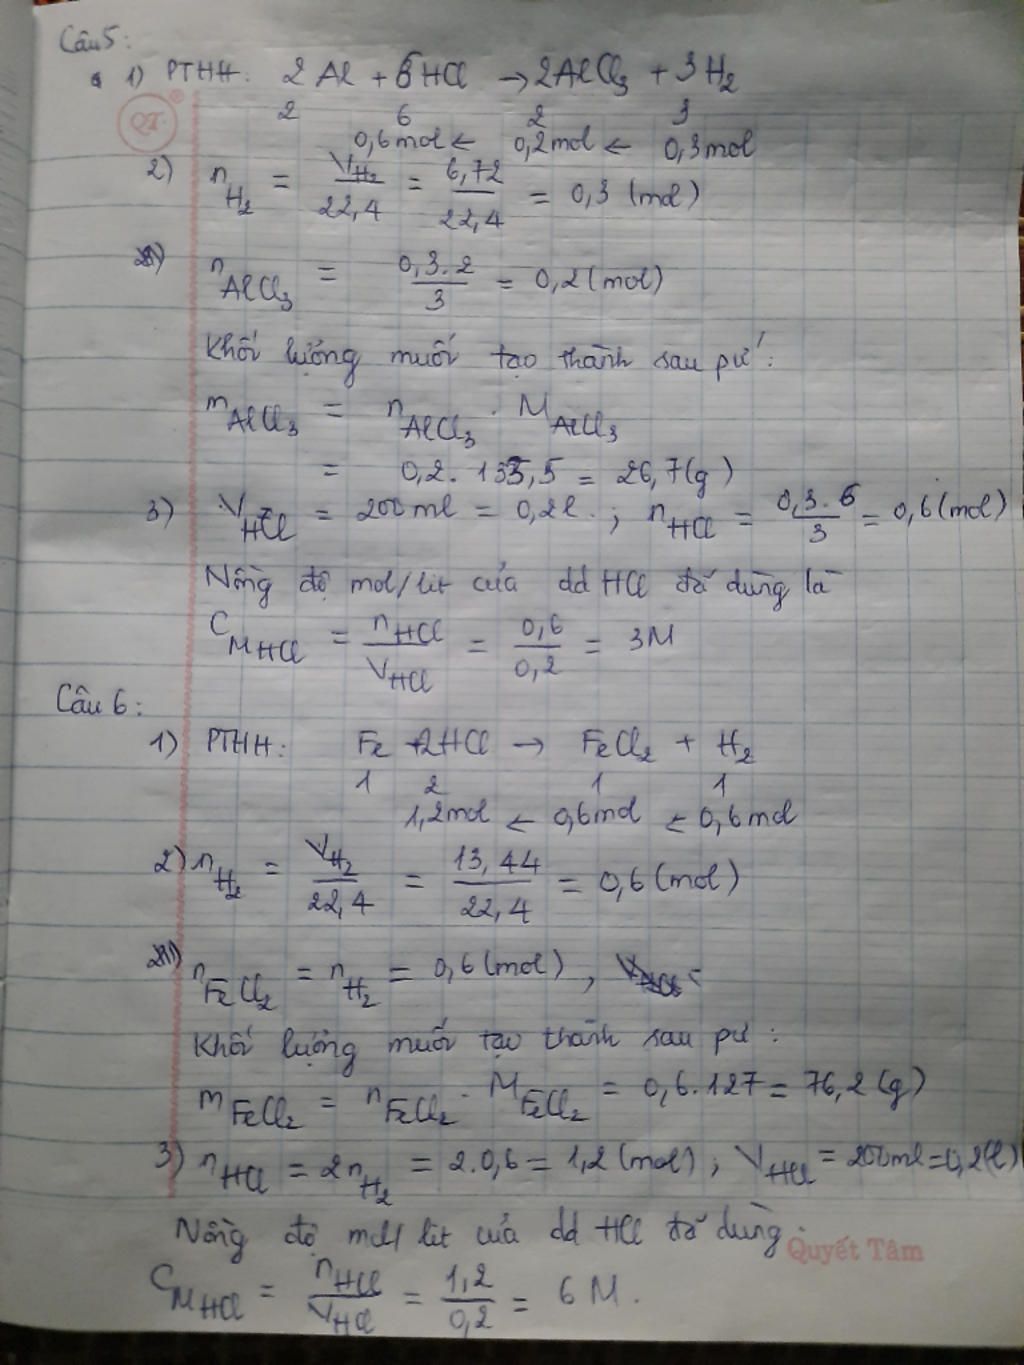 Câu 5:
1) PTHH: 2Al + 6HCl → 2AlCl₃ + 3H₂
QT ®
2 6 2 3
0,6mol ← 0,2mol ← 0,3mol
2) n_H₂ = V_H₂/22,4 = 6,72/22,4 = 0,3 (mol)
n_AlCl₃ = 0,3.2/3 = 0,2 (mol)
Khối lượng muối tạo thành sau pứ:
m_AlCl₃ = n_AlCl₃ . M_AlCl₃
= 0,2. 133,5 = 26,7(g)
3) V_HCl = 200ml = 0,2l. ; n_HCl = 0,3.6/3 = 0,6(mol)
Nồng độ mol/lit của dd HCl đã dùng là
C_M HCl = n_HCl/V_HCl = 0,6/0,2 = 3M
Câu 6:
1) PTHH: Fe + 2HCl → FeCl₂ + H₂
1 2 1 1
1,2mol ← 0,6mol ← 0,6mol
2) n_H₂ = V_H₂/22,4 = 13,44/22,4 = 0,6 (mol)
n_FeCl₂ = n_H₂ = 0,6 (mol),
Khối lượng muối tạo thành sau pứ:
m_FeCl₂ = n_FeCl₂ . M_FeCl₂ = 0,6.127 = 76,2 (g)
3) n_HCl = 2n_H₂ = 2.0,6 = 1,2 (mol) ; V_HCl = 200ml = 0,2(l)
Nồng độ mol/ lit của dd HCl đã dùng.
Quyết Tâm
C_M HCl = n_HCl/V_HCl = 1,2/0,2 = 6 M.